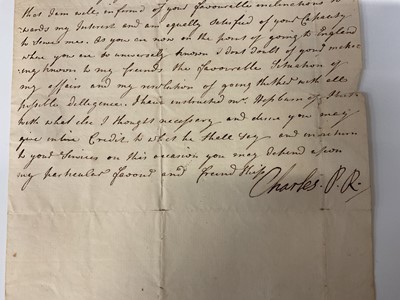 that I am well inform'd of your favourable inclinations to
wards my Interest and am equally satisfied of your Capacity
to serve me. As you are now on the point of going to England
where you are so universaly known I dont doubt of your making
known to my freinds the favourable Situation of
my affairs and my resolution of going thither with all
possible dilligence. I have instructed Mr. Hepburn of
with what else I thought necessary and desire you may
give intire Credit to what he shall say and in return
to your Services on this occasion you may depend upon
my particular favour and freindship
Charles. P. R.